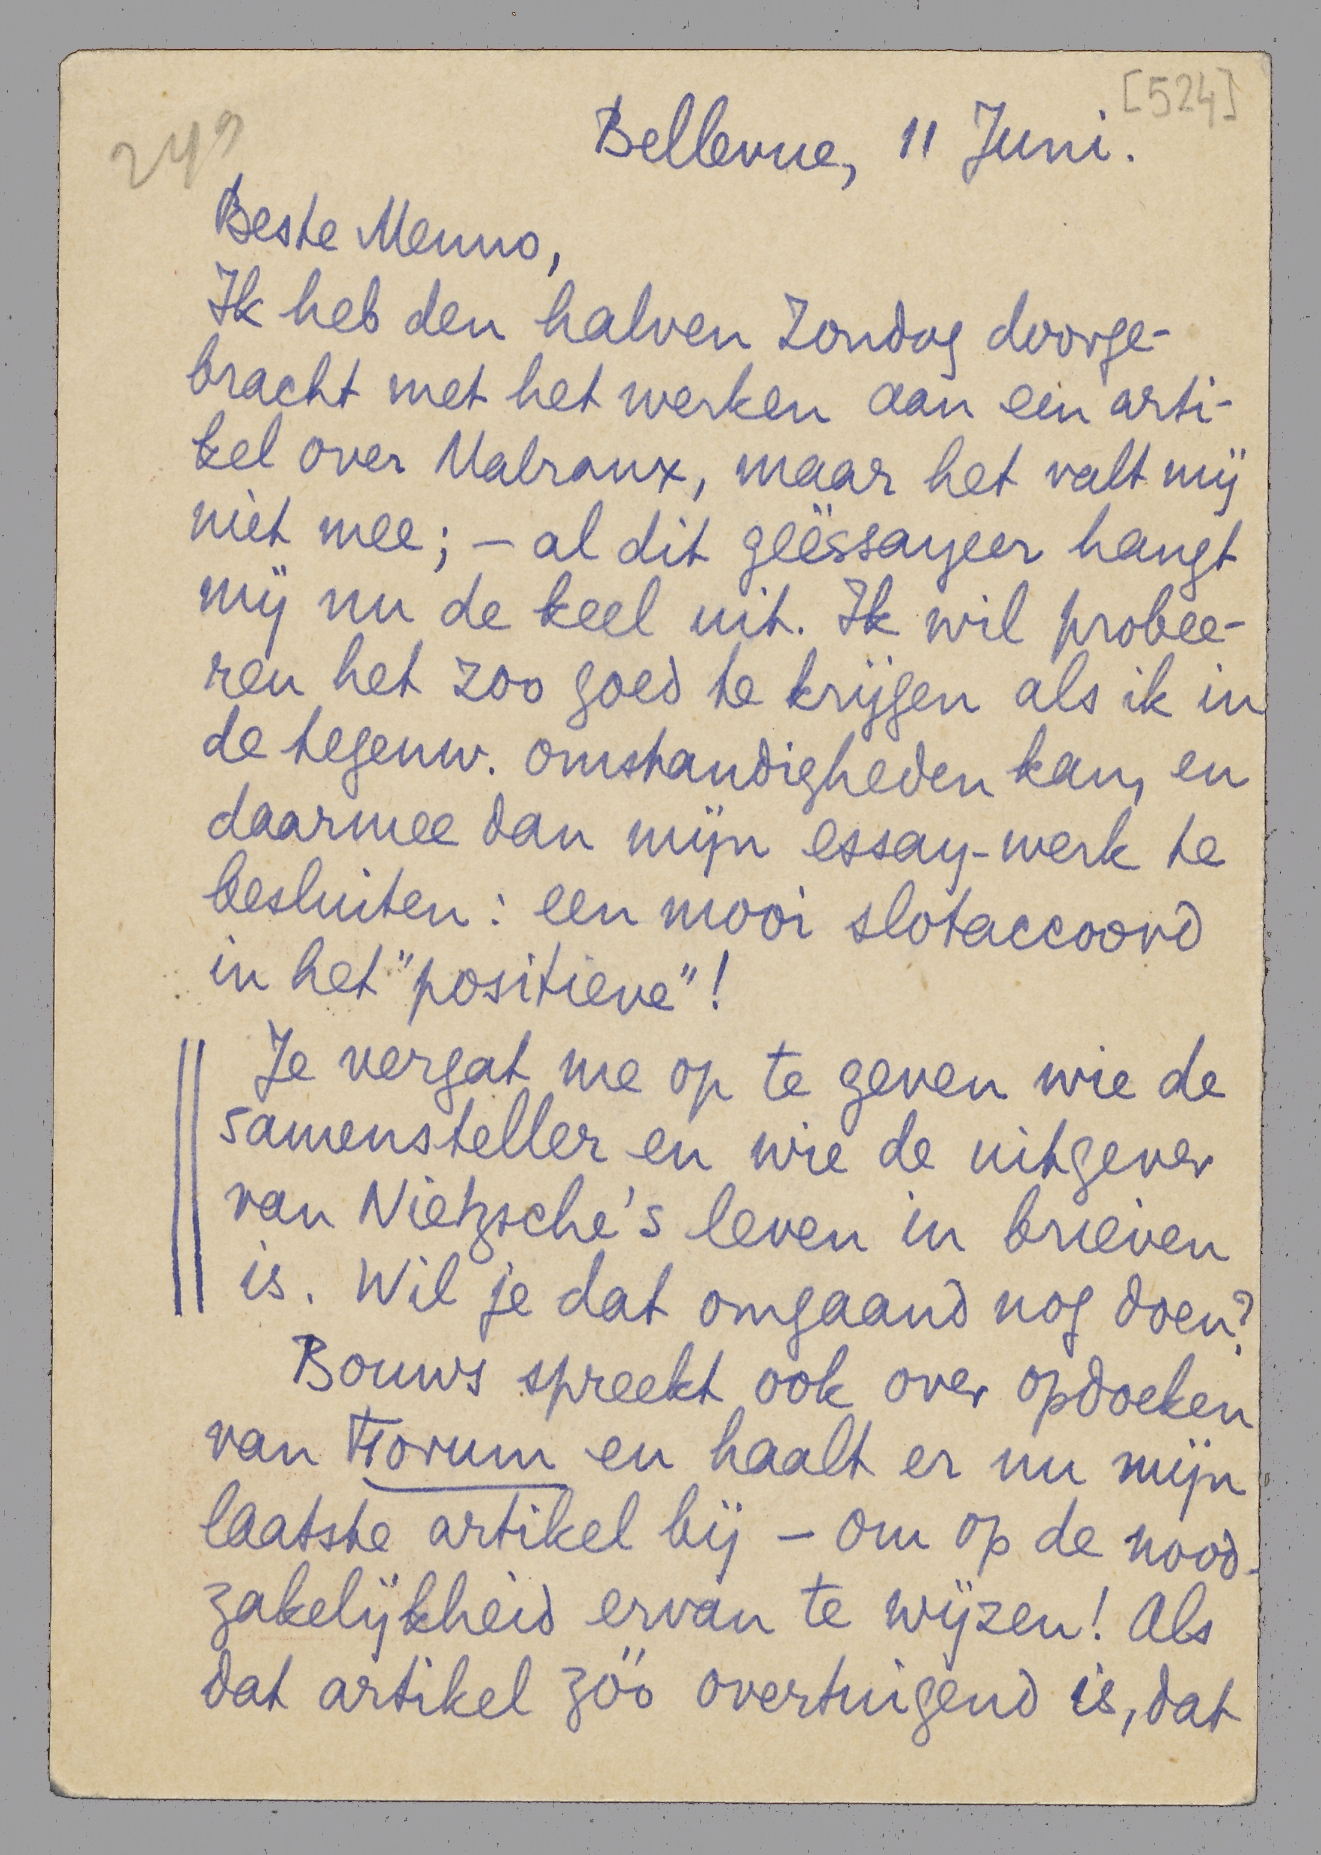 [524]
249
Bellevue, 11 Juni.
Beste Menno,
Ik heb den halven Zondag doorge-
bracht met het werken aan een arti-
kel over Malraux, maar het valt mij
niet mee; – al dit geëssayeer hangt
mij nu de keel uit. Ik wil probee-
ren het zoo goed te krijgen als ik in
de tegenw. omstandigheden kan, en
daarmee dan mijn essay-werk te
besluiten: een mooi slotaccoord
in het "positieve"!
Je vergat me op te geven wie de
samensteller en wie de uitgever
van Nietzsche's leven in brieven
is. Wil je dat omgaand nog doen?
Bouws spreekt ook over opdoeken
van Forum en haalt er nu mijn
laatste artikel bij – om op de nood-
zakelijkheid ervan te wijzen! Als
dat artikel zóó overtuigend is, dat